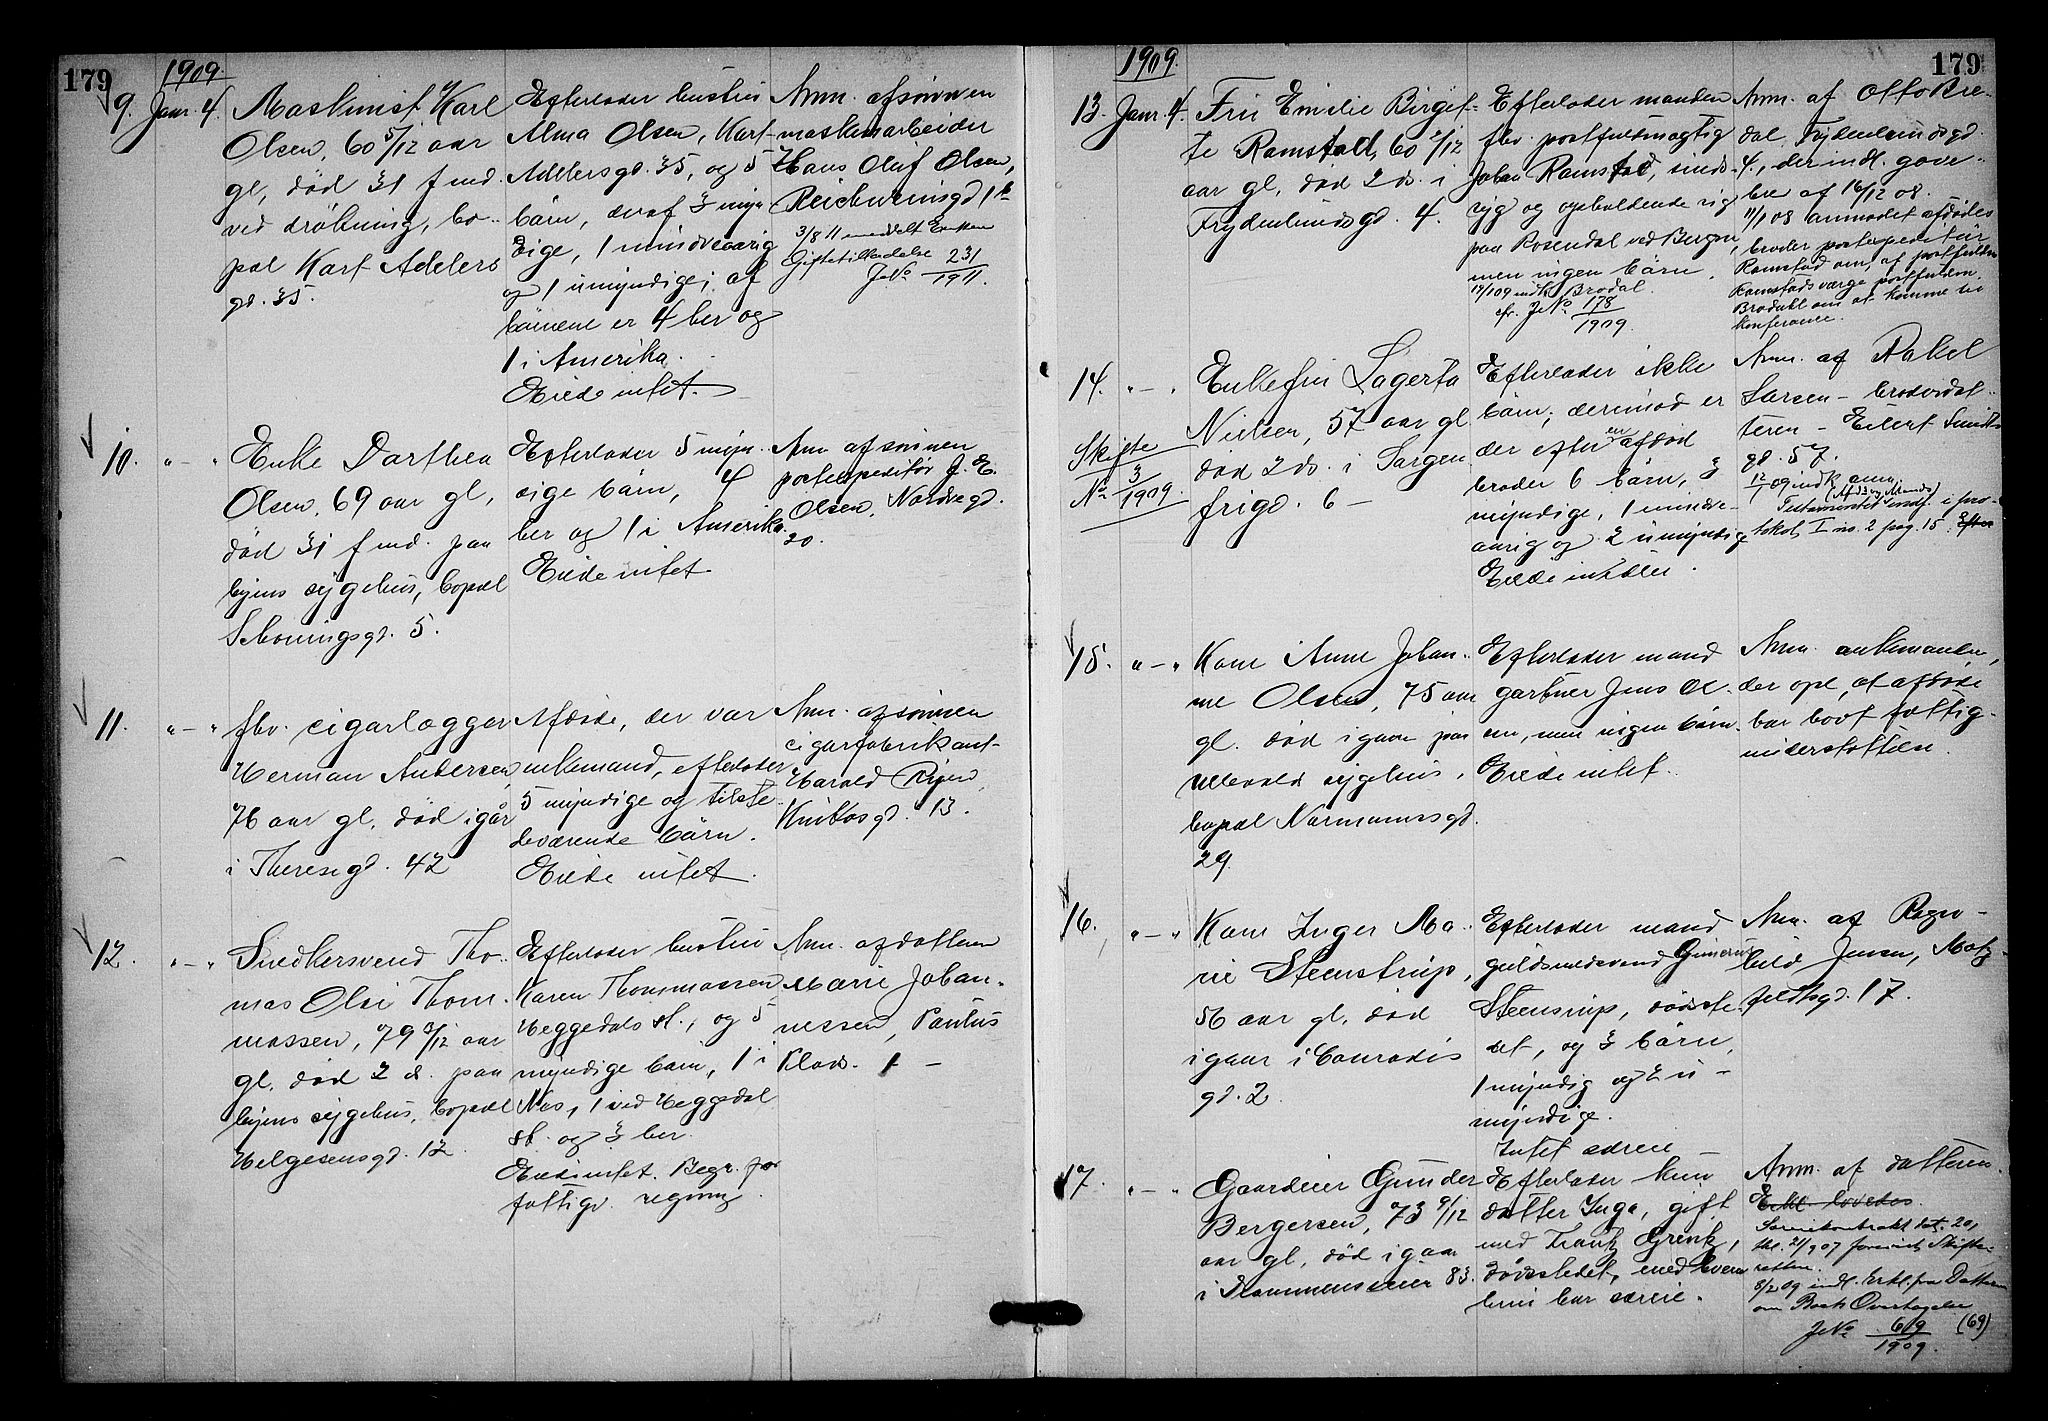 179
1909.
9. Janr. 4. Maskinist Karl
Olsen, 60 5/12 aar
gl, död 31 f md.
ved drökning, bo-
pæl Kort Adelers
gd. 35.
Efterlader hustru
Alma Olsen, Kort
Adelersgd. 35, og 5
börn, deraf 3 myn
dige, 1 mindreaarig
og 1 umyndige; af
börnene er 4 her og
1 i Amerika.
Eiede intet.
Anm. af sønnen
maskinarbeider
Hans Olaf Olsen,
Reichweinsgd 1
3/8 11 meddelt Enken
Giftetilladelse
JNo 231/1911.
10. " - " Enke Dorthea
Olsen, 69 aar gl,
död 31 f md. paa
byens sygehus, bopæl
Schøningsgd. 5.
Efterlader 5 myn
dige börn, 4
her og 1 i Amerika.
Eiede intet
Anm af sønnen
postexpeditör J. E.
Olsen, Nordregd.
20.
11. " - " fhv. cigarlægger
Herman Andersen,
76 aar gl, död igår
i Theresegd. 42
Afdøde, der var
enkemand, efterlader
5 myndige og tilste-
deværende börn.
Eiede intet.
Anm. af sønnen
cigarfabrikant
Harald
gd. 13.
12. " - " Snedkersvend Tho-
mas Olsi Thom-
massen, 79 3/12 aar
gl, död 2 d. paa
byens sygehus, bopæl
Helgesensgd. 12.
Efterlader hustru
Karen Thommassen
Heggedals st., og 5
myndige börn, 1 i
Nes, 1 ved Heggedal
st. og 3 her.
Eiede intet. Begr. for
fattigv. regning.
Anm. af datteren
Marie Johan-
nessen, Paulus
Plads. 1 -
179
1909.
13. Janr. 4. Fru Emilie Birgit-
te Ramstad, 60 2/12
aar gl, död 2 ds. i
Frydenlundsgd. 4.
Efterlader manden
fhv. postfuldmægtig
Johan Ramstad, sinds-
syg og opholdende sig
paa Rosendal ved Bergen,
men ingen börn.
cfr. JNo 178/1909.
Anm. af Otto Bre-
dal, Frydenlundsgd.
4., der indl. gave-
brev af 16/12 08.
11/1 08 anmodet afdødes
broder postexpeditör
Ramstad om, at postfuldm.
Ramstads værge postfuldm.
Bredahl om at komme til
konferance.
14. " - " Enkefru Lagerta
Nielsen, 57 aar gl
död 2 ds. i Sorgen
frigd. 6 -
Skifte
No 3/1909.
Efterlader ikke
börn; derimod er
der efter en afdød
broder 6 börn, 3
myndige, 1 mindre-
aarig og 2 umyndige
Anm. af Rakel
Larsen - broderdat-
teren - Eilert Sundts
gd. 57.
Testamentet indf. i pro-
tokol I no. 2 pag. 15.
15. " - " Kone Anne Johan-
ne Olsen, 75 aar
gl. död igaar paa
Ullevold sygehus,
bopæl Normannsgd.
29.
Efterlader mand
gartner Jens Ol-
sen, men ingen börn.
Eiede intet.
Anm. enkemanden,
der opl., at afdøde
har havt fattig-
understøttelse.
16. " - " Kone Inger Ma-
rie Steenstrup,
56 aar gl, död
igaar i Conradis
gd. 2.
Efterlader mand
guldsmedsvend Gunerius
Steenstrup, dödste-
det, og 3 börn,
1 myndig og 2 u-
myndige.
Intet særeie
Anm. af Ragn-
hild Jensen, Motz-
feldtsgd. 17.
17. " - " Gaardeier Gunder
Bergersen, 73 9/12
aar gl, död igaar
i Drammensveien 83.
Efterlader kun
datter Inga, gift
med Frantz Grenk,
dødsstedet, med hvem
hun har særeie.
Anm. af datteren.
Erkl. lovedes.
20,
forevist Skifte-
retten.
8/2 09 indl. Erkl. fra Datteren
om Boets Overtagelse
JNo 619/1909. (69)